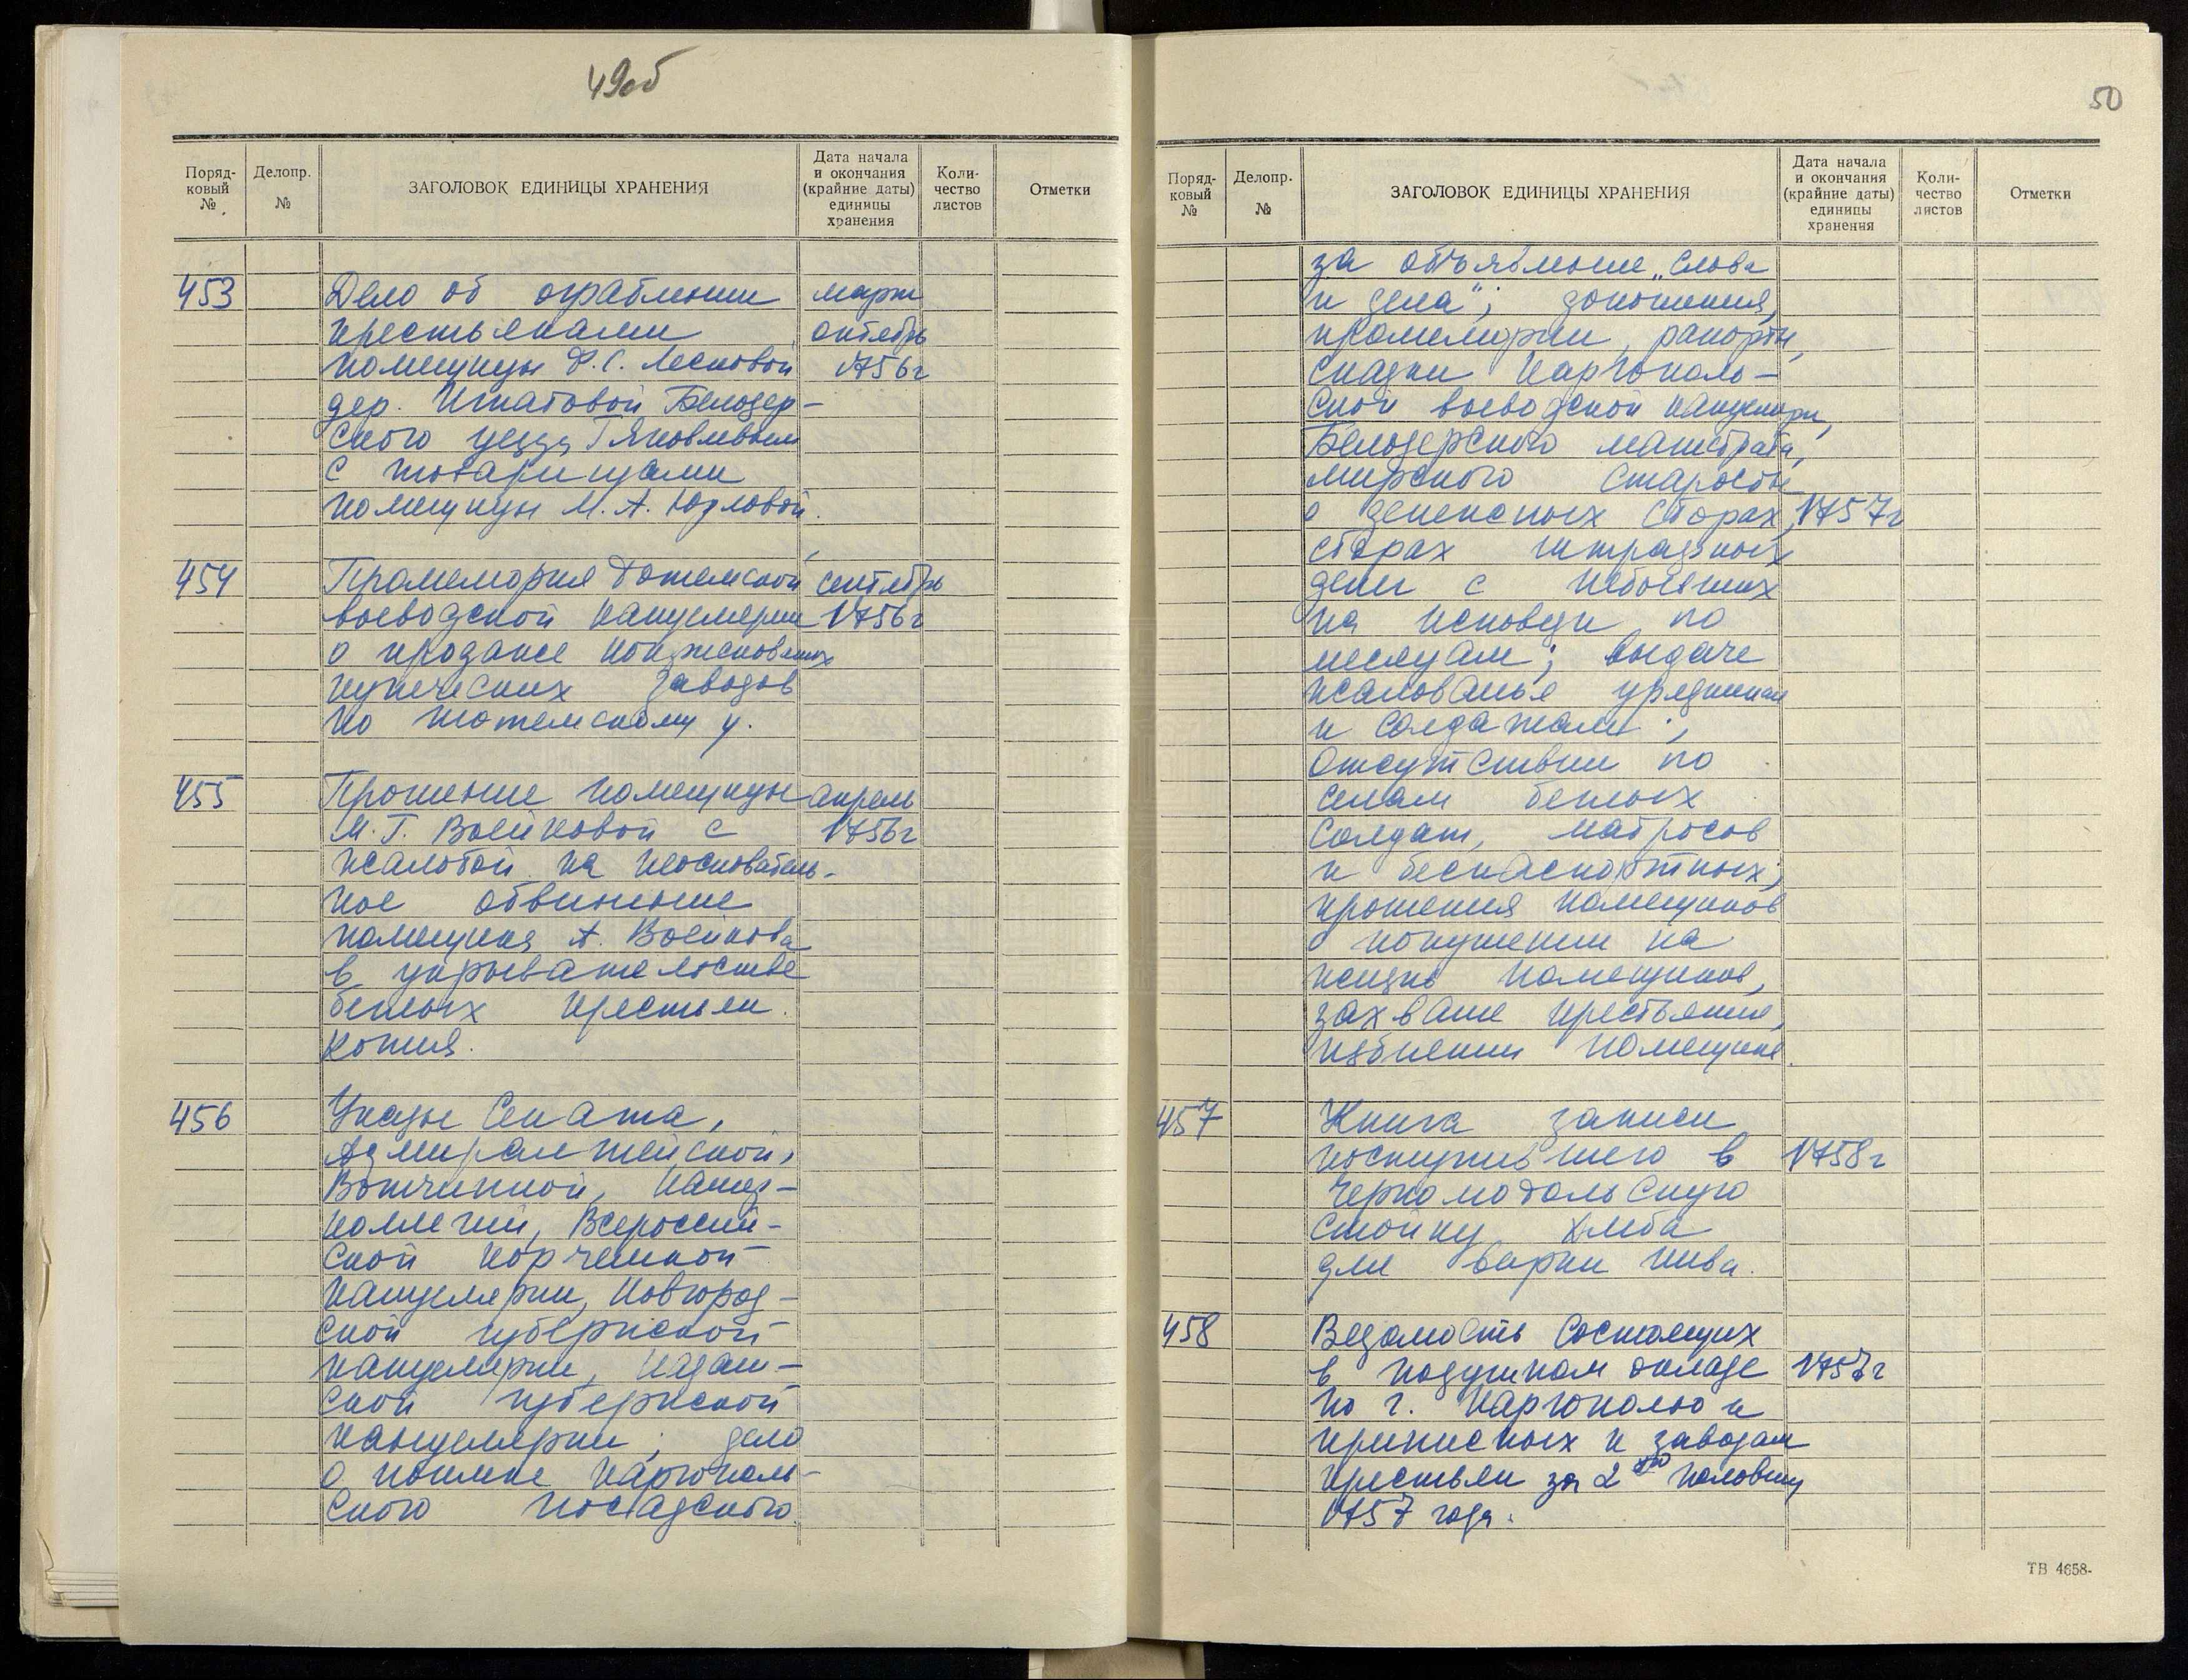 49об
Поряд-
ковый
№
Делопр.
№
ЗАГОЛОВОК ЕДИНИЦЫ ХРАНЕНИЯ
Дата начала
и окончания
(крайние даты)
единицы
хранения
Коли-
чество
листов
Отметки
453 Дело об ограблении март
крестьянами октябрь
помещицы Ф.С. Лесковой 1756г
дер. Игнатовой Белозер-
ского уезда Г Яковлевым
с товарищами
помещицы М.А. Юрловой.
454 Промемория Тотемской сентябрь
воеводской канцелярии 1756г
о продаже конфискованных
купеческих заводов
по Тотемскому у.
455 Прошение помещицы апрель
М.Г. Воейковой с 1756г
жалобой на неоснователь-
ное обвинение
помещика А. Воейкова
в укрывательстве
беглых крестьян.
Копия.
456 Указы Сената,
Адмиралтейской,
Вотчинной, Камер-
коллегий, Всероссий-
ской корчемной
канцелярии, Новгород-
ской губернской
канцелярии, Казан-
ской губернской
канцелярии; дело
о поимке каргополь-
ского посадского
50
Поряд-
ковый
№
Делопр.
№
ЗАГОЛОВОК ЕДИНИЦЫ ХРАНЕНИЯ
Дата начала
и окончания
(крайние даты)
единицы
хранения
Коли-
чество
листов
Отметки
за объявление „слова
и дела"; доношения,
промемории, рапорты,
сказки Каргополь-
ской воеводской канцелярии,
Белозерского магистрата,
мирского старосты
о денежных сборах, 1757г
сборах штрафных
денег с небывших
на исповеди по
месяцам; выдаче
жалованья урядникам
и солдатам;
отсутствии по
селам беглых
солдат, матросов
и беспаспортных;
прошения помещиков
о покушении на
жизнь помещиков,
захвате крестьянина,
избиении помещика.
457 Книга записи
поступившего в 1758г
Чернотодальскую
стойку хлеба
для варки пива.
458 Ведомость состоящих
в подушном окладе 1757г
по г. Каргополю и
приписных к заводам
крестьян за 2ую половину
1757 года.
ТВ 4658-